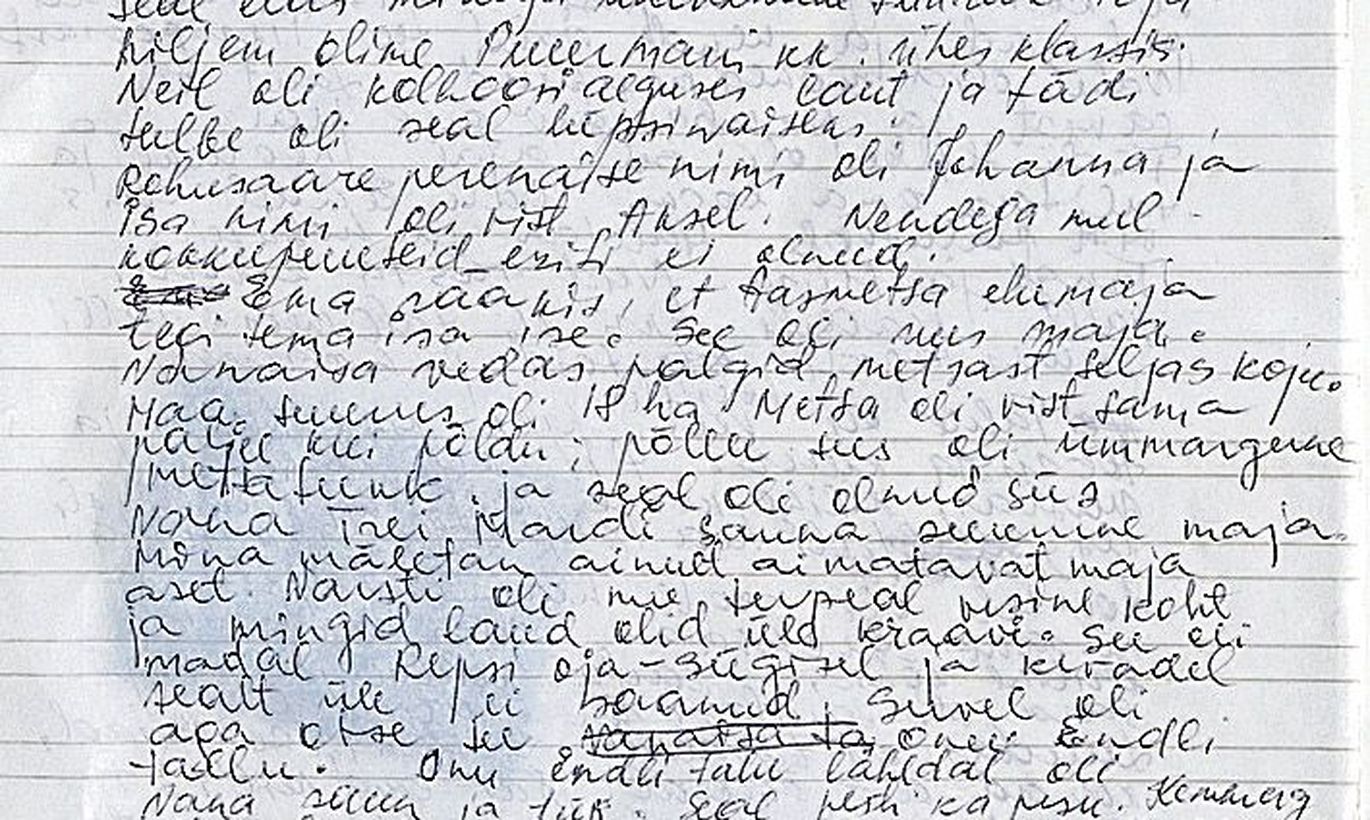 hiljem olime Puurmani kk. ühes klassis.
Neil oli kolhoosi alguses laut ja tädi
oli seal lüpsinaiseks.
Rohusaare perenaise nimi oli Johanna ja
isa nimi oli vist Aksel. Nendega mul
kokkupuuteid eriti ei olnud.
Ema rääkis, et Aasmetsa elumaja
tegi tema isa ise. See oli uus maja.
Vanaisa vedas palgid metsast seljas koju.
Maa suurus oli 18 ha. Metsa oli vist sama
palju kui põldu; põllu sees oli ümmargune
metsatukk. ja seal oli olnud siis
Vana Mardi sauna suurune maja.
Mina mäletan ainult aimatavat maja
aset. Varsti oli me teepeal vesine koht
ja mingid lauad olid üle kraavi. See oli
madal Repsi oja - Sügisel ja kevadel
sealt üle ei saanud, Suvel oli
aga otse tee onu Endli
tallu. Onu Endli talu lähedal oli
Vana ja tiik. Seal pesti ka pesu.